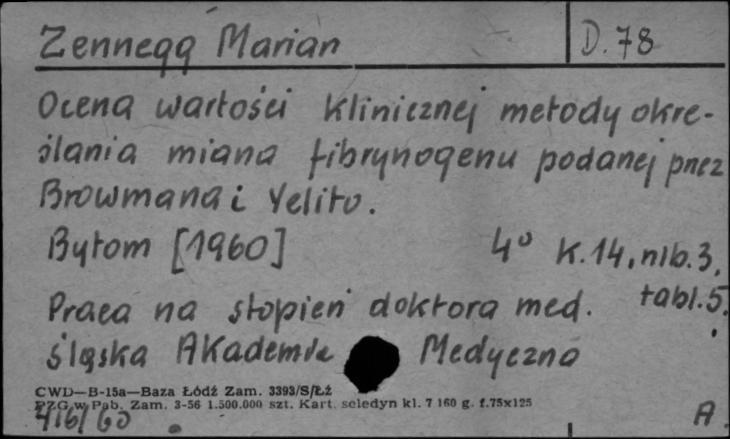 Zennegg Marian D.78
Ocena wartości klinicznej metody okre-
ślania miana fibrynogenu podanej przez
Browmana i Yelitu.
Bytom [1960] 4° K.14, nlb.3,
tabl.5.
Praca na stopień doktora med.
Śląska Akademia Medyczna
CWD—B-15a—Baza Łódź Zam. 3393/S/Łź
PZG w Pab. Zam. 3-56 1.500.000 szt. Kart. seledyn kl. 7 160 g. f.75x125
416/60 A.